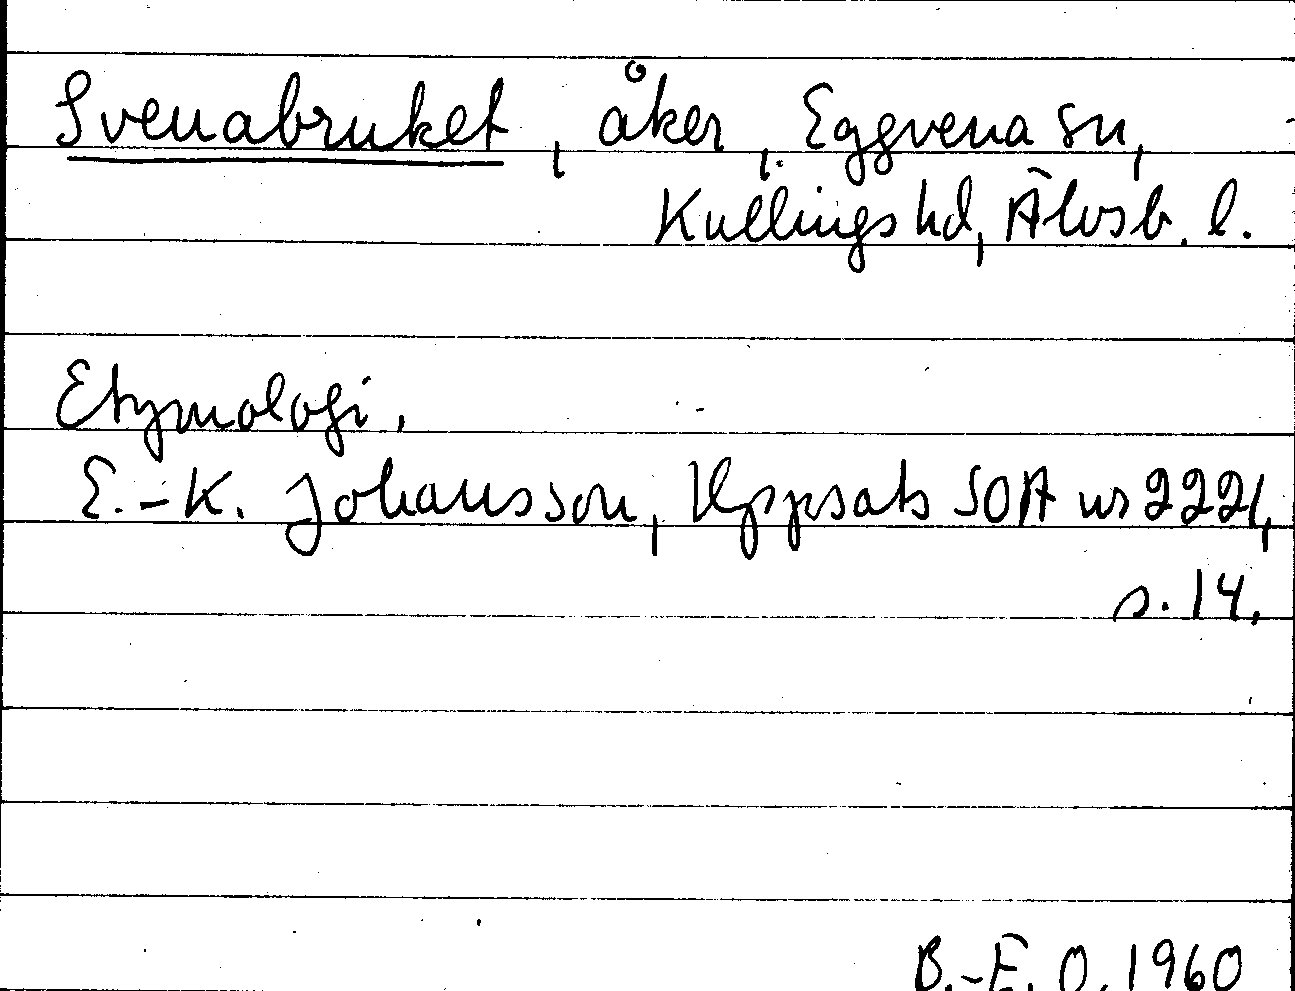 Svenabruket, åker, Eggvena sn,
Kullings hd, Älvsb. l.
Etymologi,
E.-K. Johansson, Uppsats SOA nr 2221,
s. 14.
B.-E. O. 1960